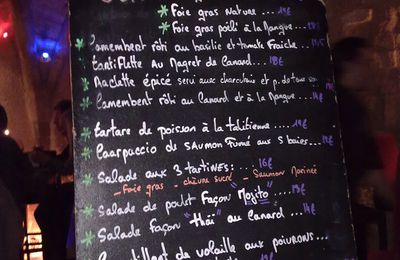 Foie gras Nature ... 19€
Foie gras poêlé à la Mangue
Camembert rôti au basilic et tomate Fraîche
tartiflette au Magret de Canard... 18€
Raclette épicé servi avec charcuterie et p. de terre
Camembert rôti au Canard et à la Mangue... 19€
tartare de poisson à la tahitienne....
Caarpaccio de Saumon Fumé aux 5 baies...
Salade aux 3 tartines: .. 16€
- Foie gras - chèvre sucré - Saumon Mariné
Salade de poulet façon "Mojito"....15€
Salade façon "thaï" au Canard...
de volaille aux poivrons...